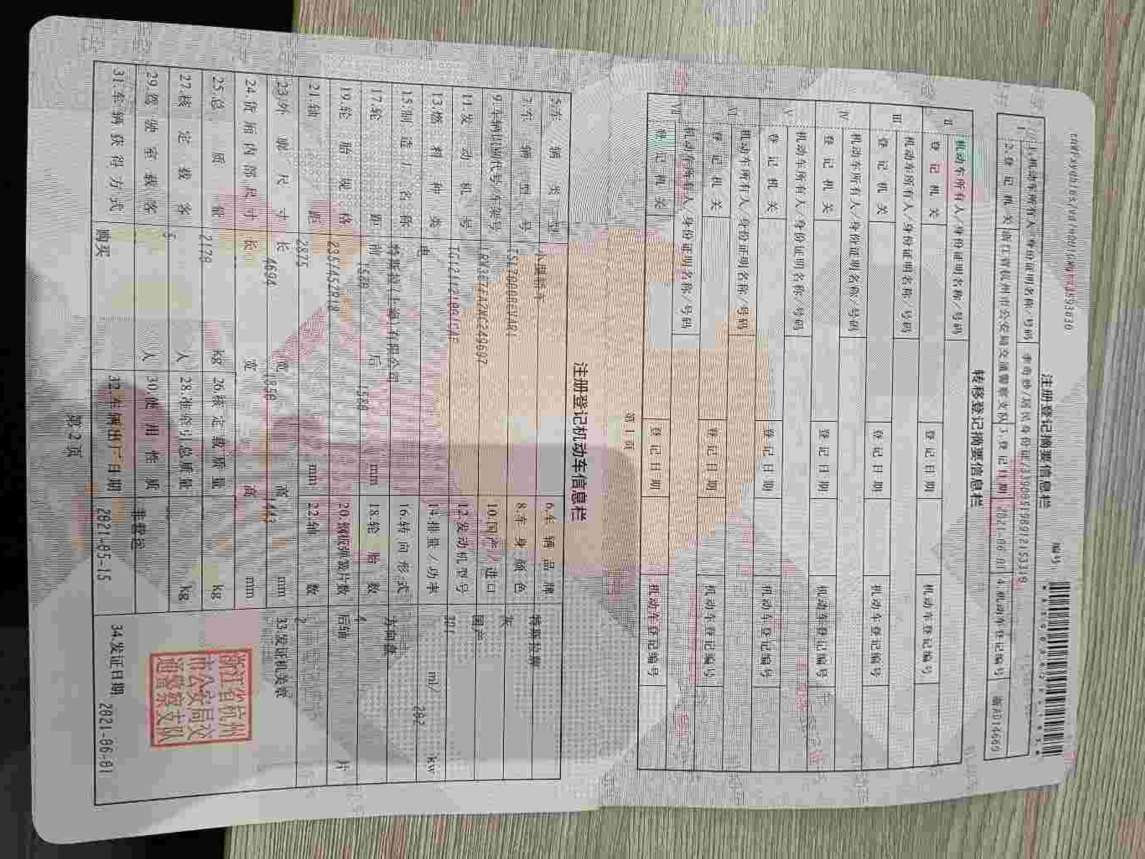 注册登记摘要信息栏
编号:
1.机动车所有人/身份证明名称/号码
2.登记机关 浙江省杭州市公安局交通警察支队 3.登记日期 2021-06-01 4.机动车登记编号
转移登记摘要信息栏
II 机动车所有人/身份证明名称/号码
登记机关 登记日期 机动车登记编号
III 机动车所有人/身份证明名称/号码
登记机关 登记日期 机动车登记编号
IV 机动车所有人/身份证明名称/号码
登记机关 登记日期 机动车登记编号
V 机动车所有人/身份证明名称/号码
登记机关 登记日期 机动车登记编号
VI 机动车所有人/身份证明名称/号码
登记机关 登记日期 机动车登记编号
VII 机动车所有人/身份证明名称/号码
登记机关 登记日期 机动车登记编号
第1页
注册登记机动车信息栏
5.车辆类型 小型轿车 6.车辆品牌 特斯拉牌
7.车辆型号 8.车身颜色 灰
9.车辆识别代号/车架号 10.国产/进口 国产
11.发动机号 12.发动机型号
13.燃料种类 电 14.排量/功率 ml/ 202 kw
15.制造厂名称 特斯拉(上海)有限公司 16.转向形式 方向盘
17.轮距 前 1580 后 1580 mm 18.轮胎数 4
19.轮胎规格 235/45ZR18 20.钢板弹簧片数 后轴 片
21.轴距 2875 mm 22.轴数 2
23.外廓尺寸 长 4694 宽 1850 高 1443 mm 33.发证机关章
24.货厢内部尺寸 长 宽 高 mm
25.总质量 2170 kg 26.核定载质量 kg
27.核定载客 5 人 28.准牵引总质量 kg
29.驾驶室载客 人 30.使用性质 非营运
31.车辆获得方式 购买 32.车辆出厂日期 2021-05-15 34.发证日期: 2021-06-01
浙江省杭州
市公安局交
通警察支队
第2页